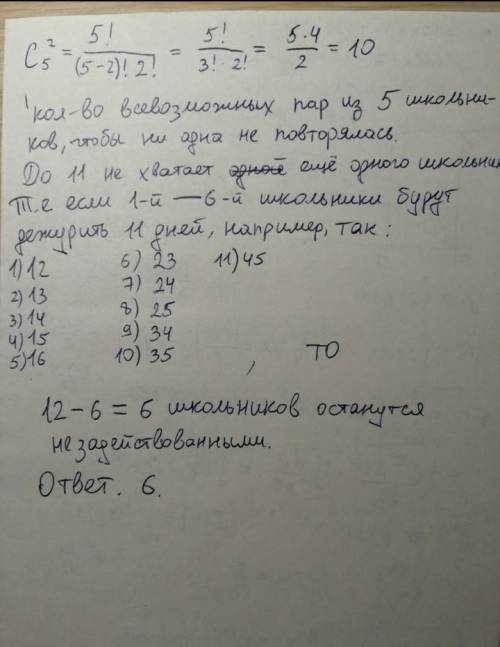 C₅² = 5!/((5-2)! 2!) = 5!/(3! 2!) = 5·4/2 = 10
кол-во всевозможных пар из 5 школьни-
ков, чтобы ни одна не повторялась.
До 11 не хватает одной ещё одного школьник
Т.е если 1-й — 6-й школьники будут
дежурить 11 дней, например, так:
1) 12 6) 23 11) 45
2) 13 7) 24
3) 14 8) 25
4) 15 9) 34
5) 16 10) 35 , ТО
12 - 6 = 6 школьников останутся
незадействованными.
Ответ. 6.